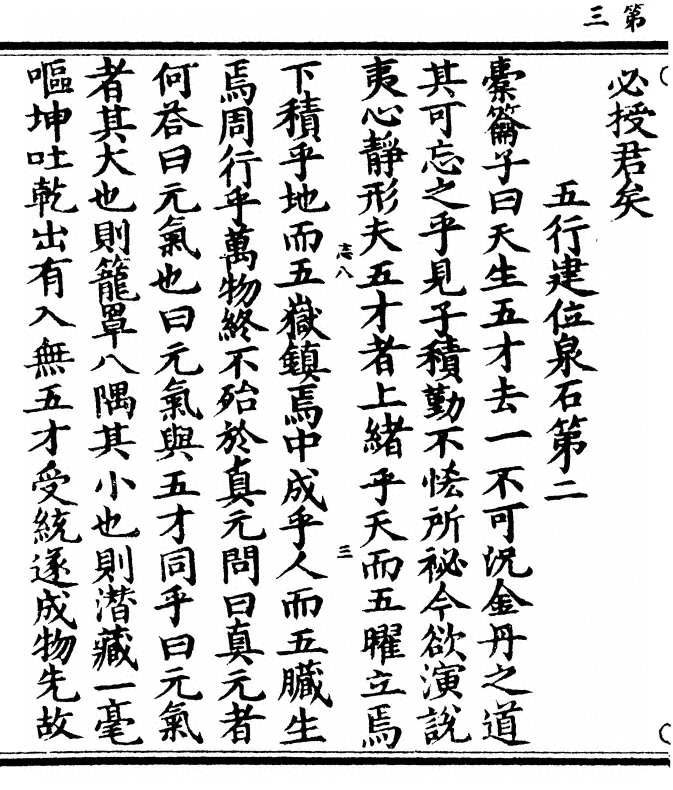 第三
必授君矣
五行建位泉石第二
橐籥子曰天生五才去一不可況金丹之道
其可忘之乎見子積勤不怯所祕今欲演說
夷心靜形夫五才者上緒乎天而五曜立焉
志八
三
下積乎地而五嶽鎮焉中成乎人而五臟生
焉周行乎萬物終不殆於真元問曰真元者
何荅曰元氣也曰元氣與五才同乎曰元氣
者其大也則籠罩八隅其小也則潛藏一毫
嘔坤吐乾出有入無五才受統遂成物先故